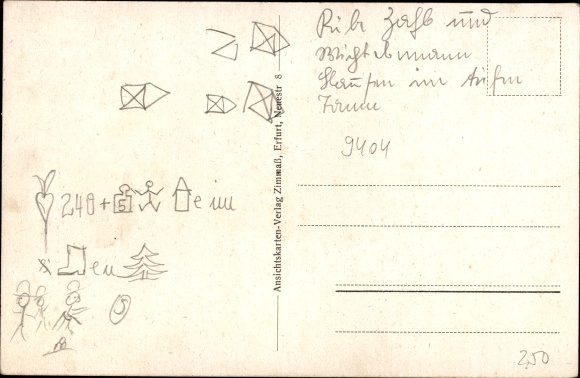 Rübezahl und
Wichtelmann
hausen im tiefen
Tann
9404
240 +
5
e im
x
en
5
Ansichtskarten-Verlag Zimmaß, Erfurt, Neuestr 8
2,50